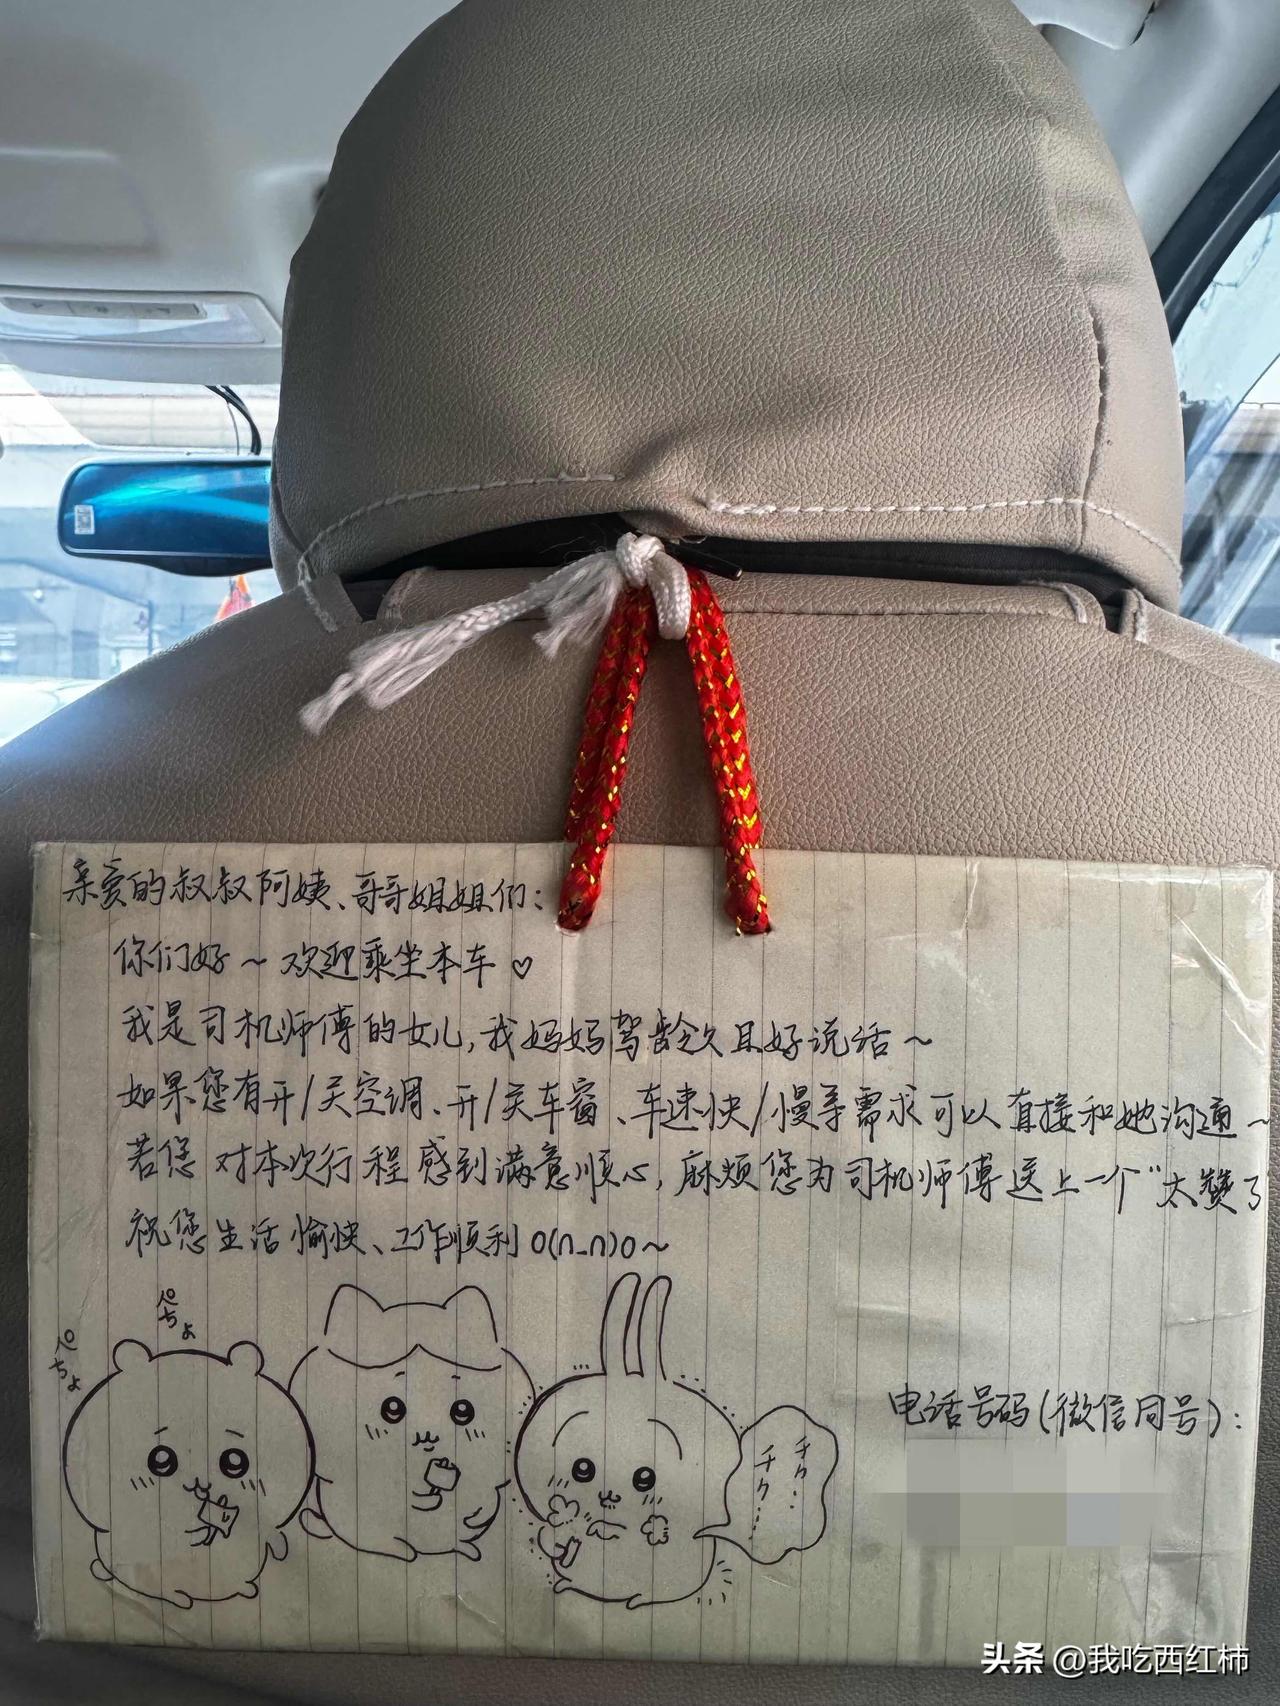 亲爱的叔叔阿姨、哥哥姐姐们：
你们好～欢迎乘坐本车♡
我是司机师傅的女儿，我妈妈驾龄久且好说话～
如果您有开/关空调、开/关车窗、车速快/慢等需求可以直接和她沟通～
若您对本次行程感到满意顺心，麻烦您为司机师傅送上一个“太赞了
祝您生活愉快、工作顺利 o(n_n)o～
ぺちょ
ぺちょ
チク‥
チク‥‥
电话号码(微信同号)：
头条 @我吃西红柿